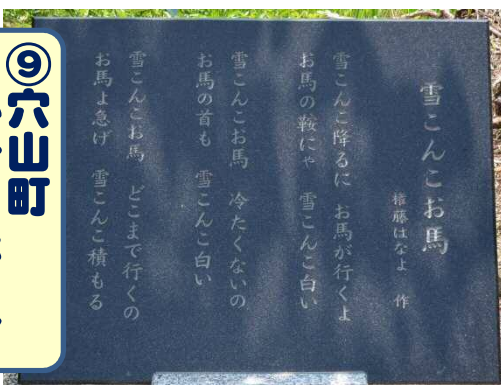 ⑨穴山町
雪こんこお馬
権藤はなよ 作
雪こんこ降るに お馬が行くよ
お馬の鞍にゃ 雪こんこ白い
雪こんこお馬 冷たくないの
お馬の首も 雪こんこ白い
雪こんこお馬 どこまで行くの
お馬よ急げ 雪こんこ積もる